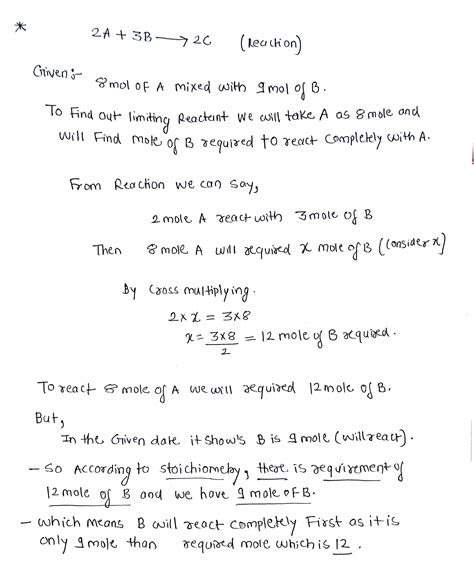 * 2A + 3B ⟶ 2C (Reaction)
Given :-
8 mol OF A mixed with 9 mol of B.
To Find out limiting Reactant we will take A as 8 mole and
will Find mole of B required to react completely with A.
From Reaction we can say,
2 mole A react with 3 mole of B
Then 8 mole A will required x mole of B (consider x)
By Cross multiplying.
2 × x = 3×8
x = 3×8/2 = 12 mole of B required.
To react 8 mole of A we will required 12 mole of B.
But,
In the Given date it shows B is 9 mole (will react).
- So According to stoichiometry, there is requirement of
12 mole of B and we have 9 mole OF B.
- which means B will react completely First as it is
only 9 mole than required mole which is 12.